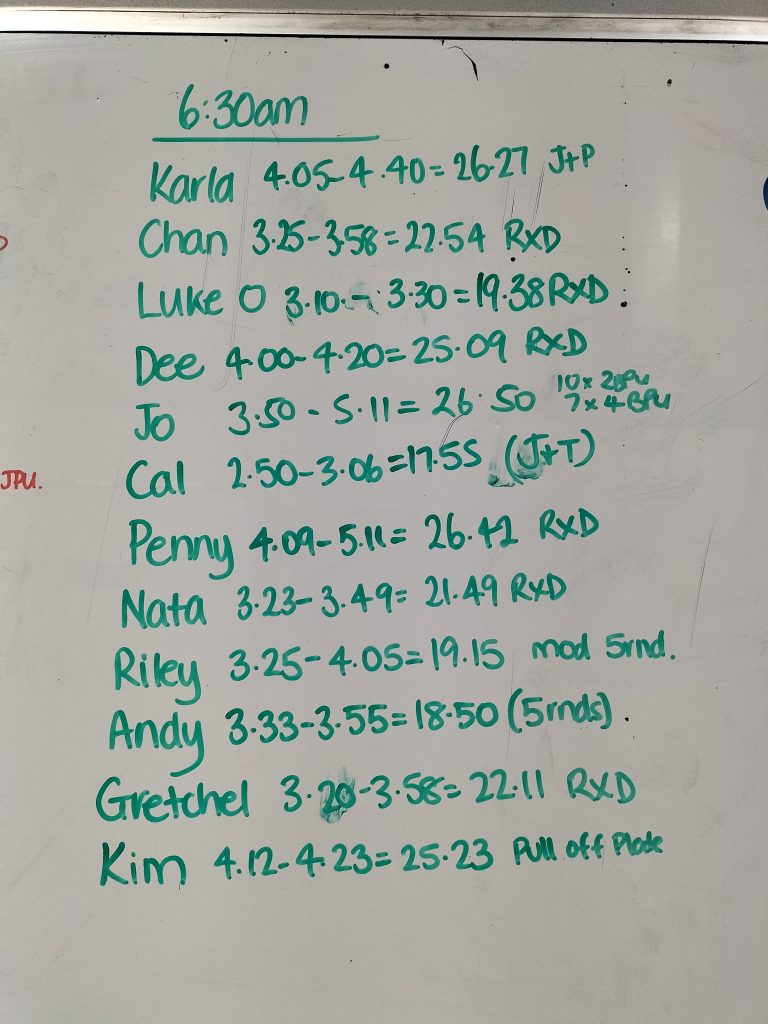 6:30am
Karla 4.05-4.40=26.27 J+P
Chan 3.25-3.58=22.54 RXD
Luke O 3.10.- 3.30=19.38 RXD
Dee 4.00-4.20=25.09 RXD
Jo 3.50 - 5.11= 26.50 10x 2GPU
7x 4BPU
Cal 2.50-3.06=17.55 (J+T)
JPU.
Penny 4.09-5.11= 26.42 RXD
Nata 3.23-3.49= 21.49 RXD
Riley 3.25-4.05=19.15 mod 5rnd.
Andy 3.33-3.55=18.50 (5rnds).
Gretchel 3.20-3.58=22.11 RXD
Kim 4.12-4.23=25.23 Pull off Plate